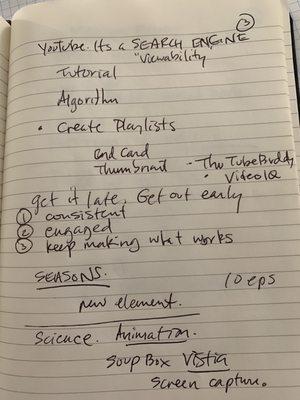 ③
YouTube. Its a SEARCH ENGINE
"Viewability
Tutorial
Algorithm
• Create Playlists
End Card
Thumbnail - The TubeBuddy
• VideoIQ
get it late. Get out early
① consistent
② engaged
③ keep making what works
SEASONS. 10 eps
new element.
Science. Animation.
Soup Box Vistia
Screen capture.